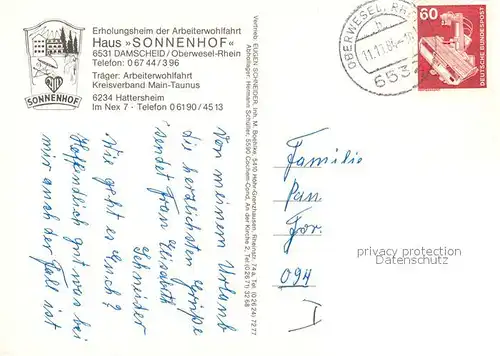 Erholungsheim der Arbeiterwohlfahrt
Haus »SONNENHOF«
6531 DAMSCHEID / Oberwesel-Rhein
Telefon: 0 67 44 / 3 96
Träger: Arbeiterwohlfahrt
Kreisverband Main-Taunus
6234 Hattersheim
Im Nex 7 · Telefon 0 61 90 / 45 13
SONNENHOF
Vertrieb: EUGEN SCHNEIDER, Inh. M. Boehlke, 5410 Höhr-Grenzhausen, Rheinstr. 74 a, Tel. (0 26 24) 72 77
Abhollager: Hermann Schüller, 5590 Cochem-Cond, An der Kirche 2, Tel. (0 26 71) 32 68
OBERWESEL, RH
11.11.84
653
60
DEUTSCHE BUNDESPOST
Von meinem Urlaub
die herzlichsten Grüße
sendet Frau Elisabeth
Schneider
Wie geht es Euch?
Hoffentlich gut was bei
mir auch der Fall ist
Familie
Pan
For
094
I
privacy protection
Datenschutz